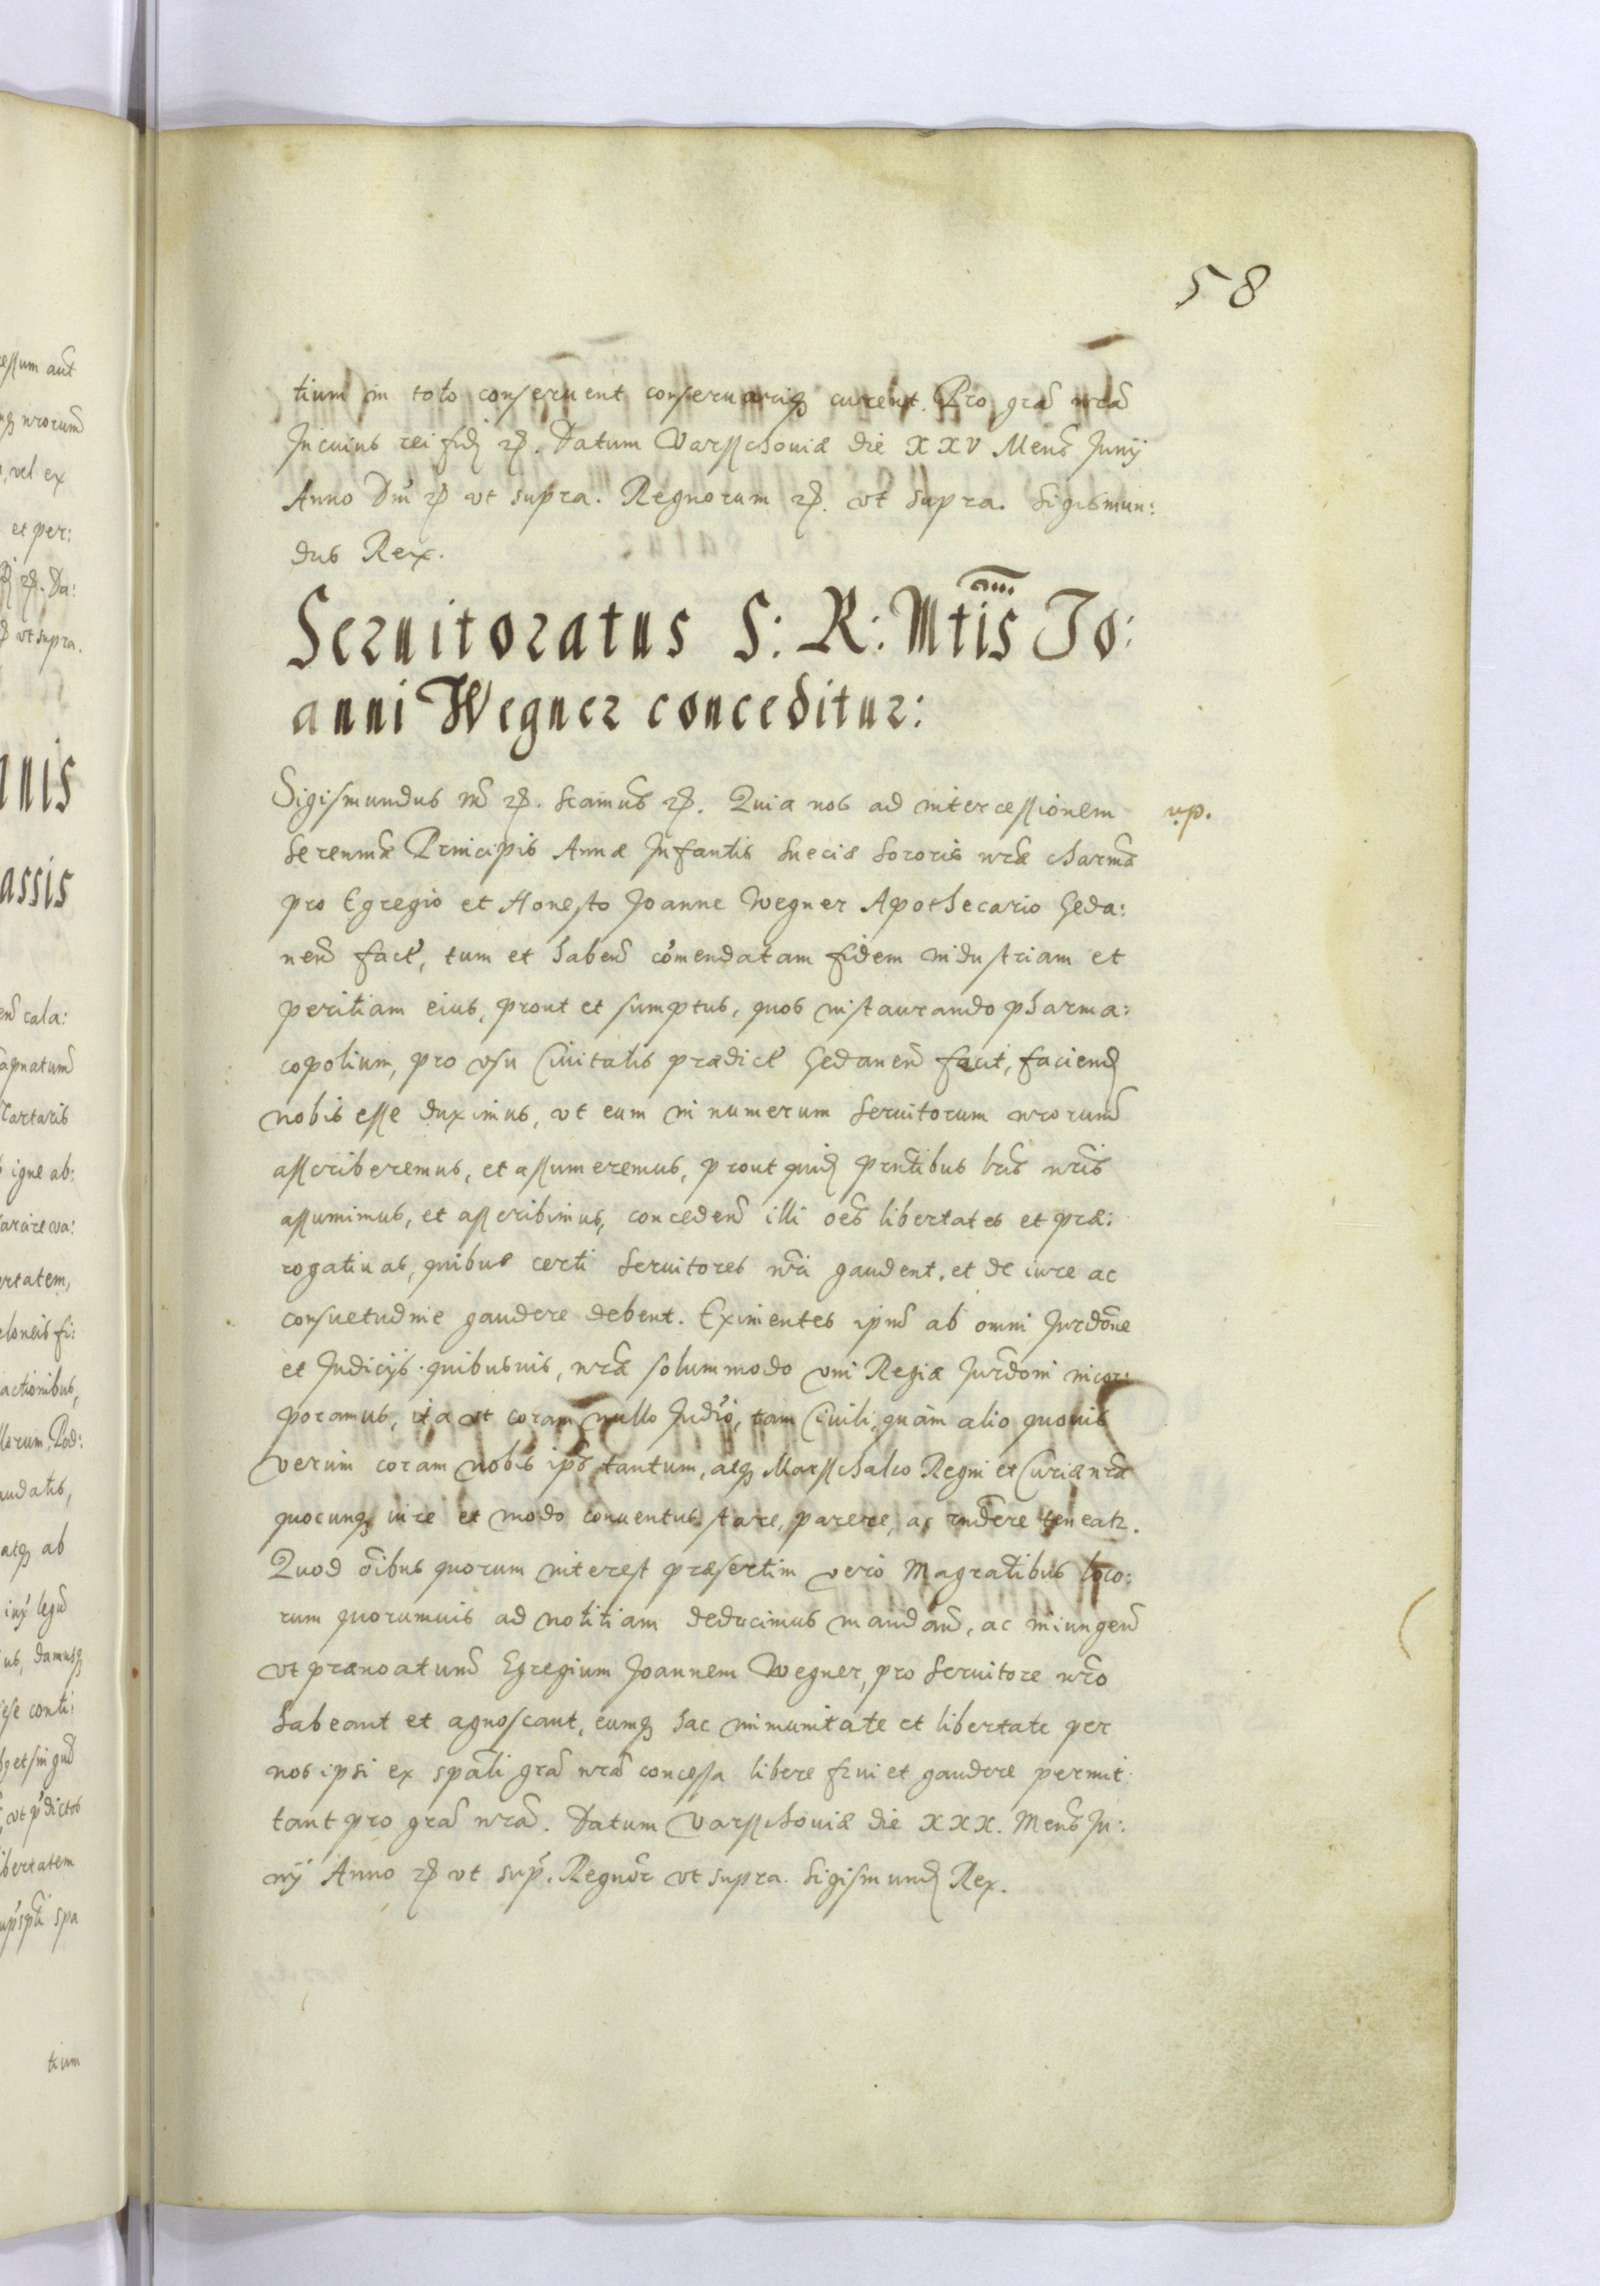 58
tium in toto conseruent conseruariq́ curent. Pro grã nrã
In cuius rei fid. etc. Datum Varsschouiæ die XXV Mens̃ Junij
Anno Dñi etc. vt supra. Regnorum etc. vt supra. Sigismun:
dus Rex.
Seruitoratus S: R: Mtis Jo:
anni Wegner conceditur:
Sigismundus III etc. Scimus etc. Quia nos ad intercessionem
up.
Serenmæ Principis Annæ Infantis Sueciæ Sororis nræ charmæ
pro Egregio et Honesto Joanne Wegner Apothecario Geda:
nen̄ fact', tum et haben̄ cõmendatam fidem industriam et
peritiam eius, prout et sumptus, quos instaurando pharma:
copolium, pro vsu Ciuitatis prædict' Gedanen̄ facit, faciend
nobis esse duximus, vt eum in numerum Seruitorum nrorum̄
asscriberemus, et assumeremus, prout quid prñtibus lris nris
assumimus, et asscribimus, conceden̄ illi oẽs libertates et præ:
rogatiuas, quibus certi Seruitores nri gaudent, et de iure ac
consuetudine gaudere debent. Eximentes ipm̄ ab omni Jurdõne
et Judicijs quibusuis, nræ solummodo vni Regiæ Jurdõni incor:
poramus, ita vt coram nullo Judio, tam Ciuili, quàm alio quouis
verum coram nobis ips̃ tantum, atq́ Marsschalco Regni et Curiæ nræ
quocunq́ iure et modo conuentus stare, parere, ac rñdere teneatr.
Quod oĩbus quorum interest præsertim verò Magratibus loco:
rum quorumuis ad notitiam deducimus mandan̄, ac iniungen̄
vt prænoatum̄ Egregium Joannem Wegner, pro Seruitore nr̃o
habeant et agnoscant, eumq́ hac immunitate et libertate per
nos ipsi ex spãli grã nrã concessa liberè frui et gaudere permit
tant pro grã nrã. Datum Varsschouiæ die XXX. Mens̃ Ju:
nij Anno etc. vt sup'. Regnor̃ vt supra. Sigismund Rex.